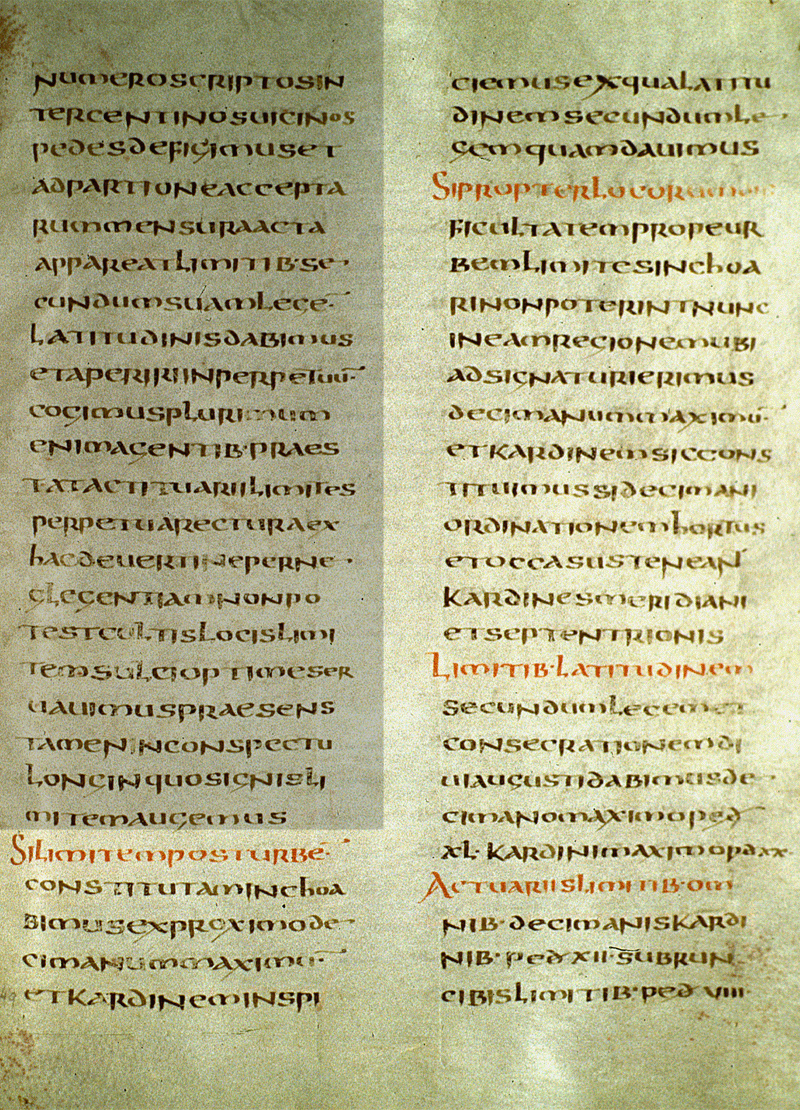 NUMEROSCRIPTOSIN
TERCENTINOSUICINOS
PEDESDEFIGIMUSET
ADPARTITIONEACCEPTA
RUMMENSURAACTA
APPAREATLIMITIB·SE·
CUNDUMSUAMLEGE·
LATITUDINISDABIMUS
ETAPERIRIINPERPETUU·
COGIMUSPLURIMUM
ENIMAGENTIB·PRAES
TATACTITUARIILIMITES
PERPETUARECTURAEX
HACDEUERTI PERNE·
GLEGENTIAM NONPO
TESTCULTISLOCISLIMI
TEMSULCIOPTIMESER
UAUIMUSPRAESENS
TAMENINCONSPECTU
LONGINQUOSIGNISLI
MITEMAUGEMUS
SILIMITEMPOSTURBE·
CONSTITUTAMINCHOA
BIMUSEXPROXIMODE·
CIMANUMMAXIMU·
ETKARDINEMINSPI
CIEMUSEXQUALATITU
DINEMSECUNDUMLE·
GEMQUAMDAUIMUS
SIPROPTERLOCORUM
FICULTATEMPROPEUR
BEMLIMITESINCHOA
RINONPOTERINTNUNC
INEAMREGIONEMUBI
ADSIGNATURIERIMUS
DECIMANUMMAXIMU·
ETKARDINEMSICCONS
TITUIMUSSIDECIMANI
ORDINATIONEMHORTUS
ETOCCASUSTENEAN
KARDINESMERIDIANI
ETSEPTENTRIONIS
LIMITIB·LATITUDINEM
SECUNDUMLEGEM
CONSECRATIONEMDI
UIAUGUSTIDABIMUSDE·
CIMANOMAXIMOPED
XL·KARDINIMAXIMOPDXX
ACTUARIISLIMITIB·OM
NIB·DECIMANISKARDI
NIB·PEDXII·SUBRUN
CIBISLIMITIB·PEDVIII